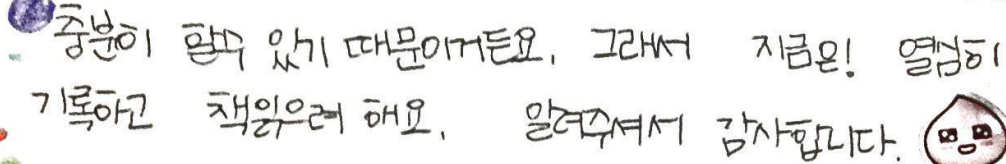 충분히 할수 있기 때문이거든요. 그래서 지금은! 열심히
기록하고 책읽으려 해요. 알려주셔서 감사합니다.